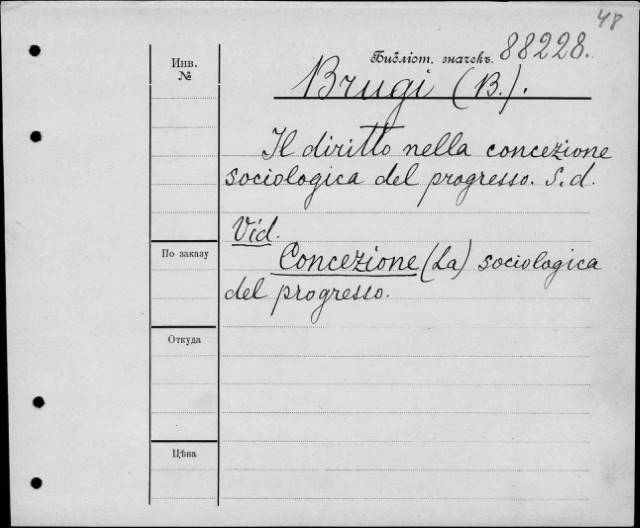 48
Инв.
№
Библіот. значекъ. 88228.
Brugi (B.).
Il diritto nella concezione
sociologica del progresso. s. d.
Vid.
По заказу
Concezione (La) sociologica
del progresso.
Откуда
Цѣна